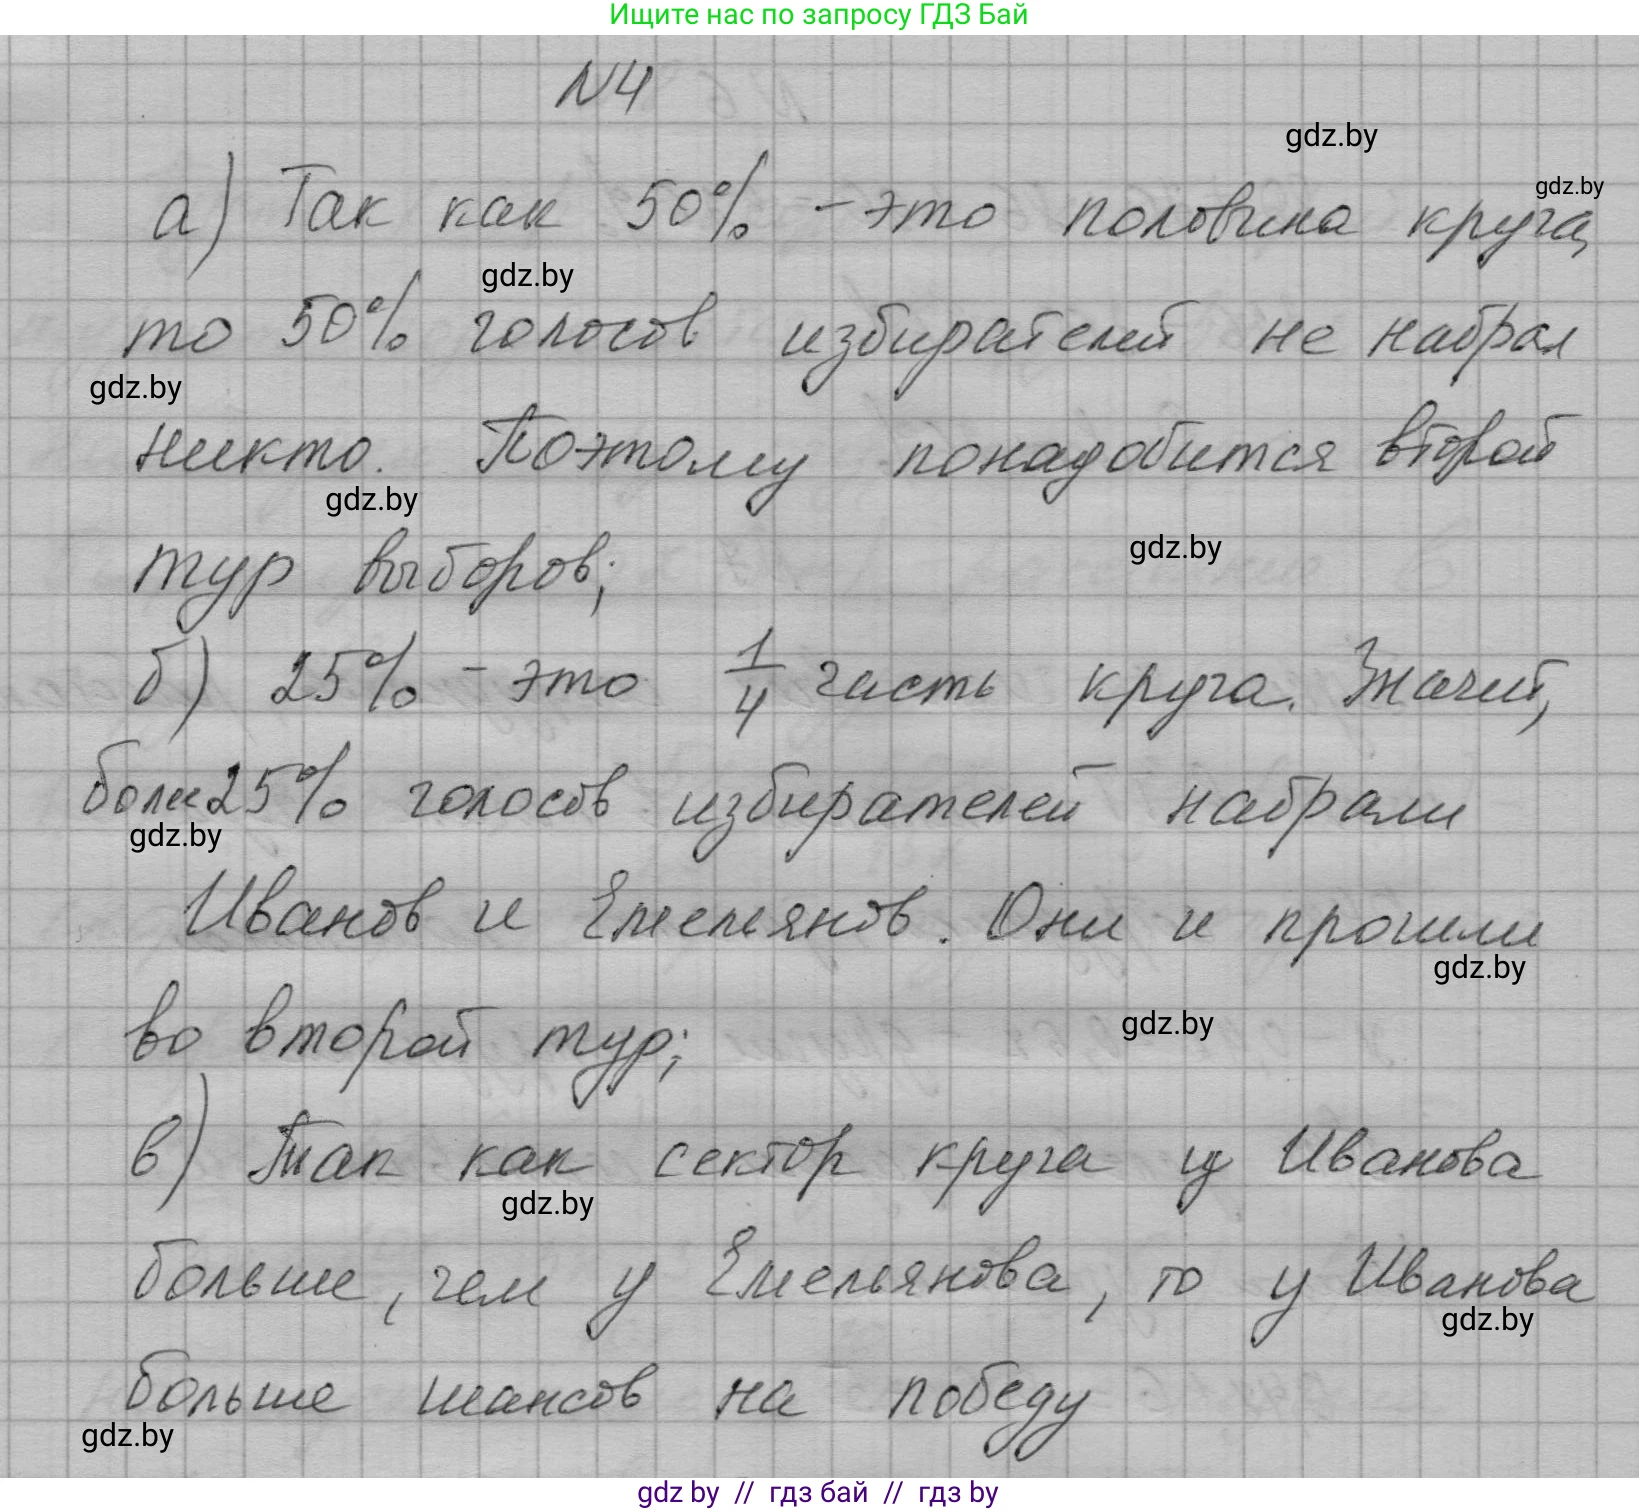 Ищите нас по запросу ГДЗ Бай
N4
gdz.by
а) Так как 50% - это половина круга,
gdz.by
gdz.by
то 50% голосов избирателей не набрал
gdz.by
никто. Поэтому понадобится второй
gdz.by
gdz.by
тур выборов;
б) 25% - это 1/4 часть круга. Значит,
более 25% голосов избирателей набрали
gdz.by
Иванов и Емельянов. Они и прошли
gdz.by
во второй тур;
gdz.by
в) Так как сектор круга у Иванова
gdz.by
больше, чем у Емельянова, то у Иванова
gdz.by
больше шансов на победу
gdz.by
gdz by // гдз бай // гдз by